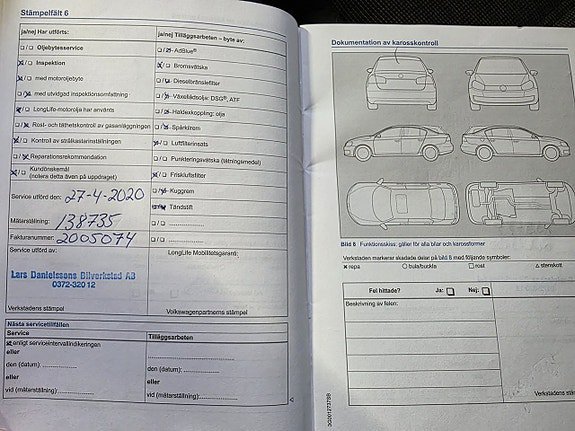 Stämpelfält 6
ja/nej Har utförts:
Oljebytesservice
Inspektion
med motoroljebyte
med utvidgad inspektionsomfattning
LongLife-motorolja har använts
Rost- och täthetskontroll av gasanläggningen
Kontroll av strålkastarinställningen
Reparationsrekommendation
Kundönskemål
(notera detta även på uppdraget)
Service utförd den: 27-4-2020
Mätarställning: 138735
Fakturanummer: 2005074
Service utförd av:
Lars Danielssons Bilverkstad AB
0372-320 12
Verkstadens stämpel
ja/nej Tilläggsarbeten – byte av:
AdBlue®
Bromsvätska
Dieselbränslefilter
Växellådsolja: DSG®, ATF
Haldexkoppling: olja
Spärkström
Luftfilterinsats
Punkteringsvätska (tätningsmedel)
Friskluftsfilter
Kuggrem
Tändstift
LongLife Mobilitetsgaranti:
Volkswagenpartnerns stämpel
Nästa servicetillfällen
Service
enligt serviceintervallindikeringen
eller
den (datum):
eller
vid (mätarställning):
Tilläggsarbeten
eller
den (datum):
eller
vid (mätarställning):
Dokumentation av karosskontroll
Bild 8 Funktionsskiss: gäller för alla bilar och karossformer
Verkstaden markerar skadade delar på bild 8 med följande symboler:
x repa
○ bula/buckla
□ rost
△ stenskott
Fel hittade? Ja: Nej:
Beskrivning av felen:
Verkstadens stäm